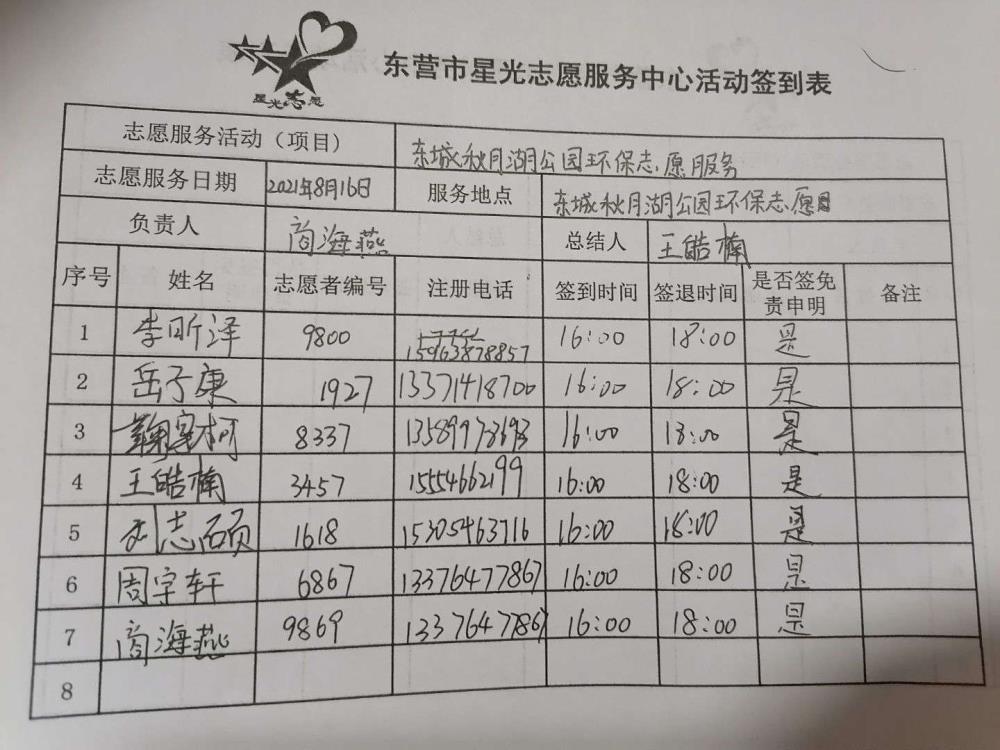 星光志愿
东营市星光志愿服务中心活动签到表
志愿服务活动（项目） 东城秋月湖公园环保志愿服务
志愿服务日期 2021年8月16日 服务地点 东城秋月湖公园环保志愿
负责人 商海燕 总结人 王皓楠
序号 姓名 志愿者编号 注册电话 签到时间 签退时间 是否签免责申明 备注
1 李昕泽 9800 15963878857 16:00 18:00 是
2 岳子康 1927 13371418700 16:00 18:00 是
3 柯 8337 16:00 18:00 是
4 王皓楠 3457 15554662199 16:00 18:00 是
5 志硕 1618 15305463716 16:00 18:00 是
6 周宇轩 6867 13376477867 16:00 18:00 是
7 商海燕 9869 13376477867 16:00 18:00 是
8